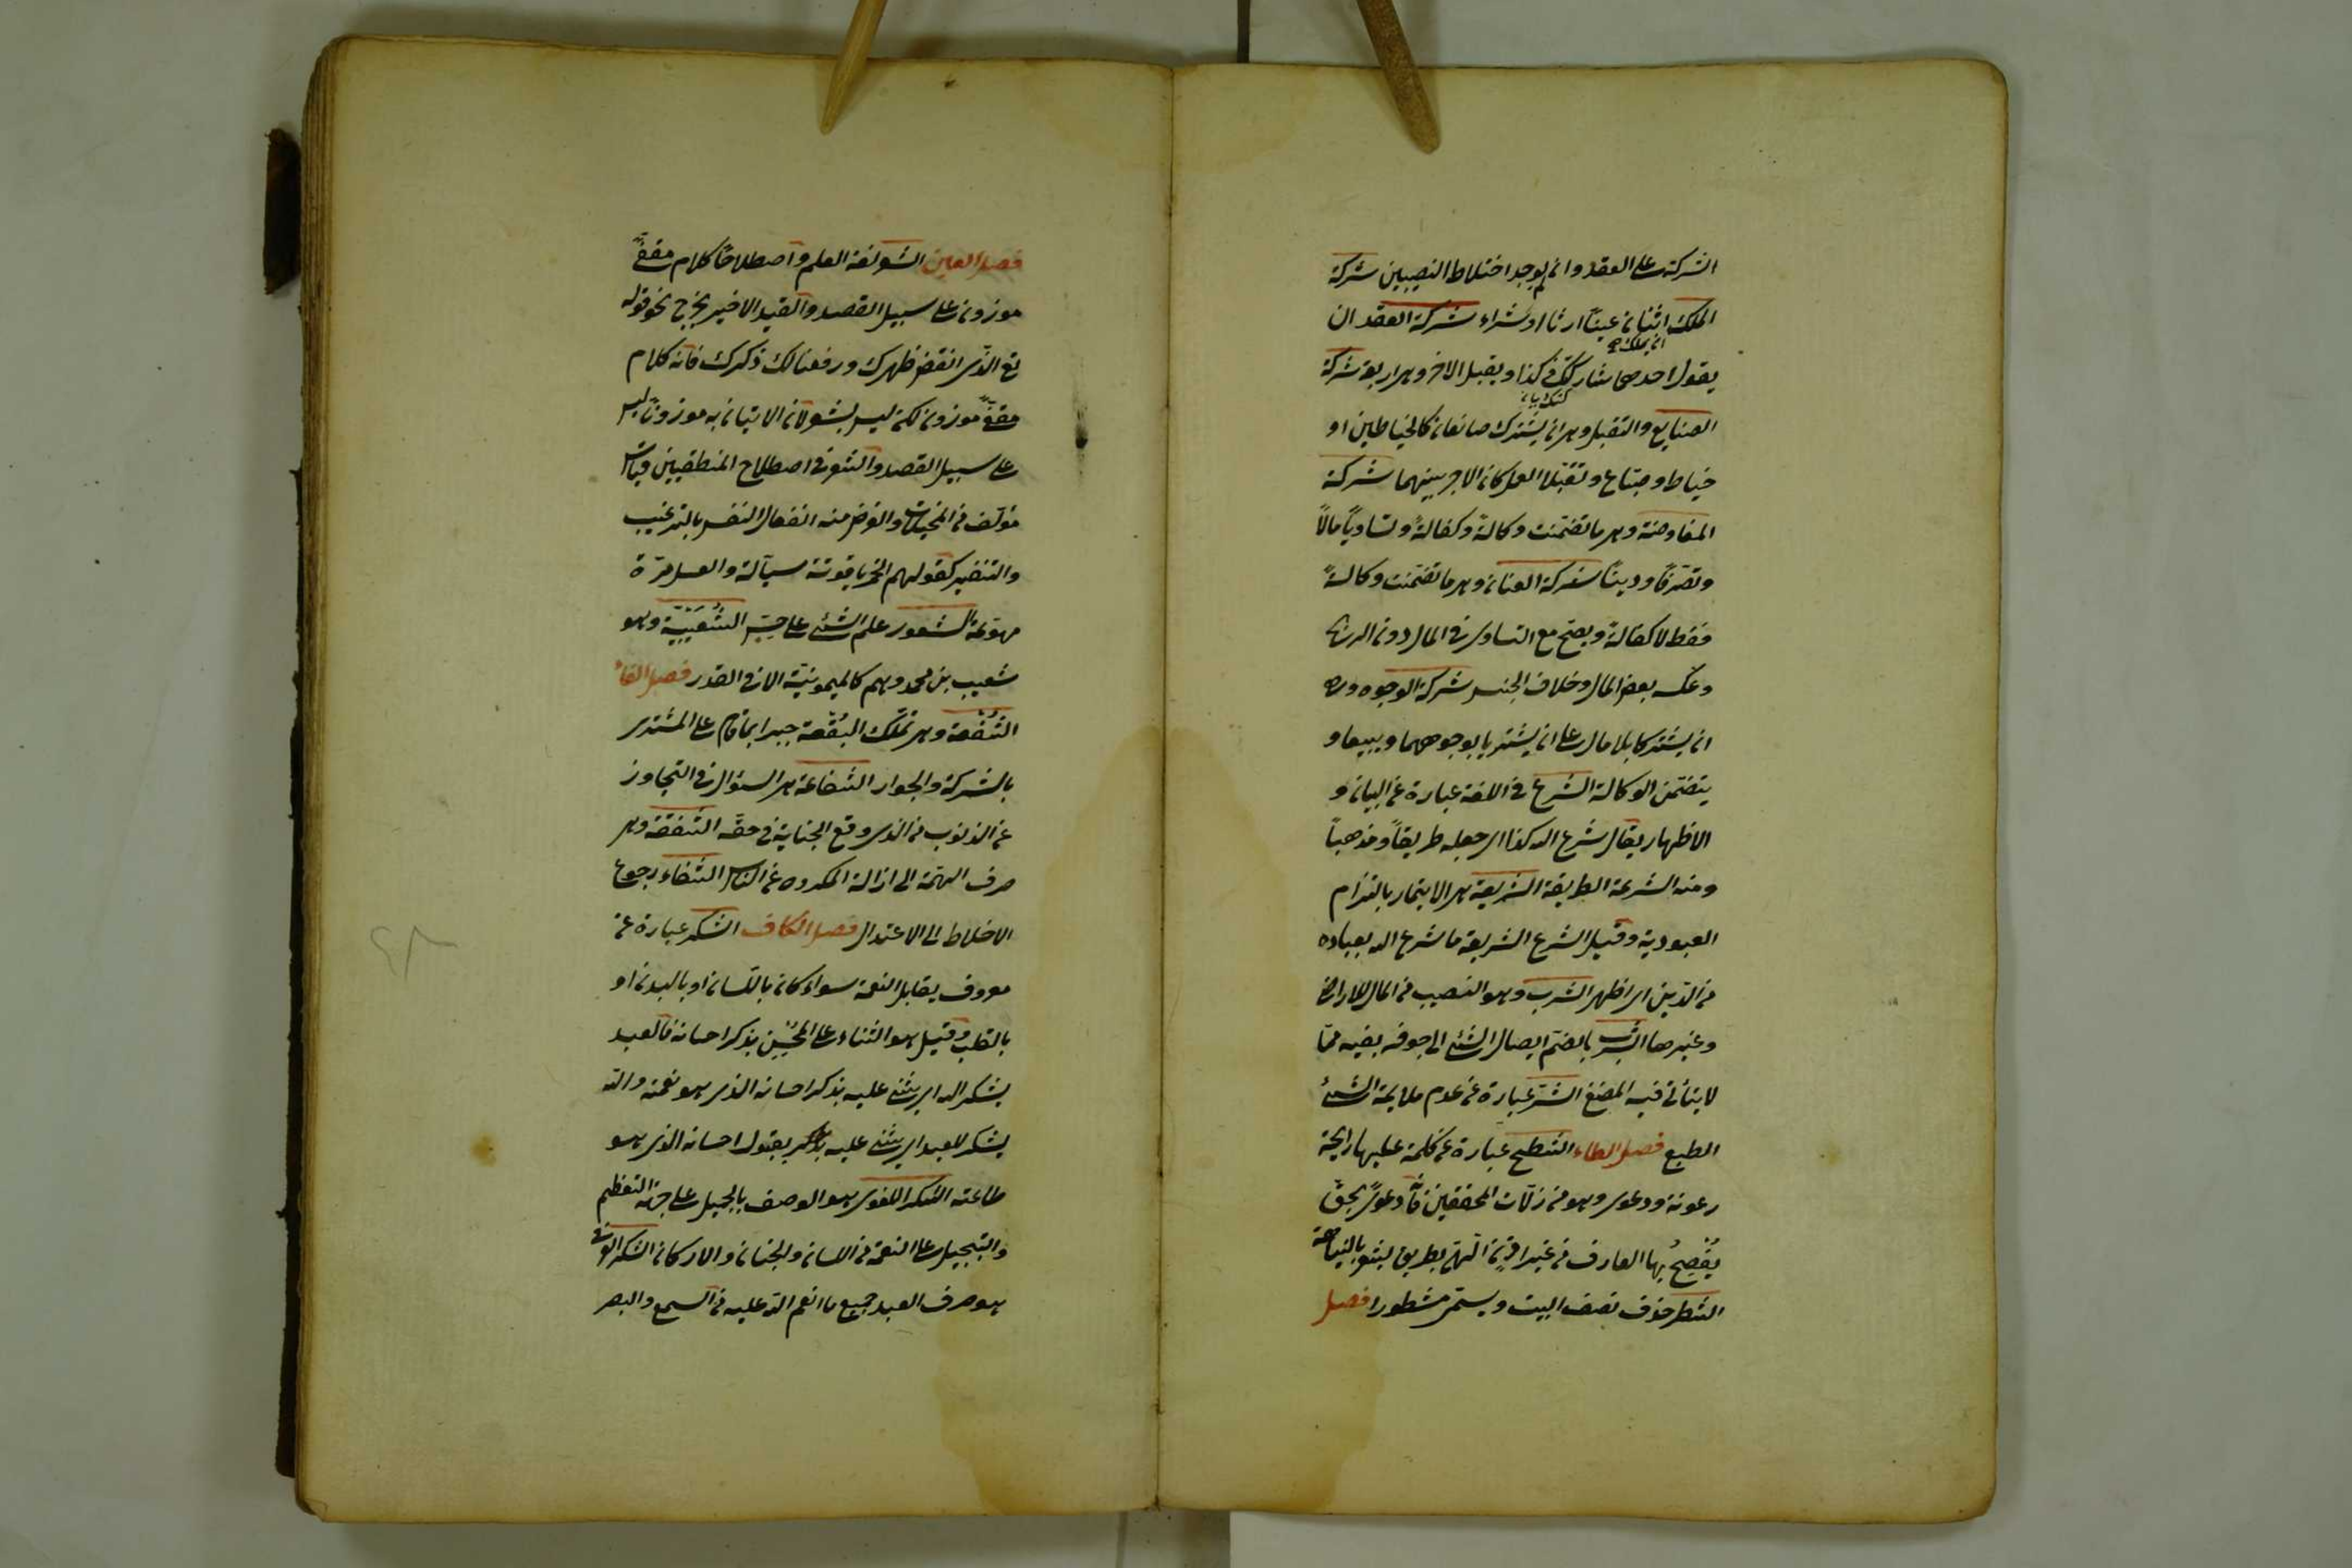 الشركة على العقد وان لم يوجد اختلاط النصيبين شركة
الملك ان يملك اثنان عينا ارثا او شراء شركة العقد ان
يقول احدهما شاركتك في كذا ويقبل الاخر وهي اربعة شركة
الصنايع والتقبل وهي ان يشترك صانعان كالخياطين او
خياط وصباغ وتقبلا العمل كان الاجر بينهما شركة
المفاوضة وهي ما تضمنت وكالةً وكفالةً وتساويًا مالًا
وتصرّفًا ودينًا شركة العنان وهي ما تضمنت وكالةً
فقط لا كفالةً ويصح مع التساوي في المال دون الربح
وعكسه بعض المال وخلاف الجنس شركة الوجوه وهي
ان يشتركا بلا مال على ان يشتريا بوجوههما ويبيعا و
يتضمن الوكالة الشرع في اللغة عبارة عن البيان و
الاظهار يقال شرع الله كذا اي جعله طريقاً ومذهباً
ومنه الشرعة الطريقة الشريعة هي الايتمار بالتزام
العبودية وقيل الشرع الشريعة ما شرع الله بعباده
من الدين اي اظهر الشرب وهو النصيب من الماء للاراضي
وغيرها الشُرب بالضم ايصال الشئ الى جوفه بفيه ممّا
لا يتأتى فيه المضغ الشر عبارة عن عدم ملايمة الشئ
الطبع فصل الطاء الشطح عبارة عن كلمة عليها رايحة
رعونة ودعوى وهو من زلّات المحققين فانّه دعوى بحقّ
يُفْصِحُ بها العارف من غير اذنٍ الٓهي بطريق يشعر بالنباهة
الشطر حذف نصف البيت ويسمّى مشطورا فصل
فصل العين الشعر لغة العلم واصطلاحًا كلام مقفًّى
موزون على سبيل القصد والقيد الاخير يخرج نحو قوله
تع الذي انقض ظهرك ورفعنا لك ذكرك فانه كلام
مقفًّى موزون لكن ليس بشعر لان الاتيان به موزونًا ليس
على سبيل القصد والشعر في اصطلاح المنطقيين قياس
مؤلف من المخيلات والغرض منه انفعال النفس بالترغيب
والتنفير كقولهم الخمر ياقوتة سيّالة والعسل مرّة
مهوّعة الشعور علم الشئ علم حسّ الشُّعَيْبِيّة وهو
شعيب بن محمد وهم كالميمونيّة الا في القدر فصل الفاء
الشُّفْعة وهي تملّك البُقْعة جبرا بما قام على المشتري
بالشركة والجوار الشفاعة هي السؤال في التجاوز
عن الذنوب من الذي وقع الجناية في حقّه الشفقة وهي
صرف الهمّة الى ازالة المكروه عن الناس الشفاء رجوع
الاخلاط الى الاعتدال فصل الكاف الشكر عبارة عن
معروف يقابل النعمة سواء كان باللسان او بالبدن او
بالقلب وقيل هو الثناء على المُحْسِن بذكر احسانه فالعبد
يشكر الله اي يثني عليه بذكر احسانه الذي هو نعمة والله
يشكر للعبد اي يثني عليه بقبول احسانه الذي هو
طاعته الشكر اللغوي هو الوصف بالجميل على جهة التعظيم
والتبجيل على النعمة من اللسان والجنان والاركان الشكر العرفي
هو صرف العبد جميع ما انعم الله عليه من السمع والبصر